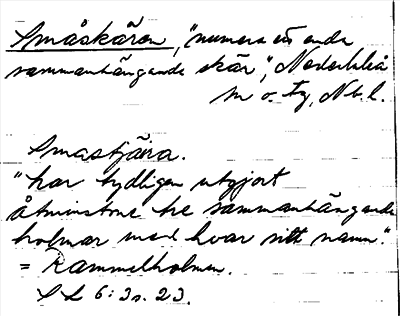 Småskären, "numera ett enda
sammanhängande skär", Nederkalix
m o. fg, Nb. l.
Smastjära.
"har tydligen utgjort
åtminstone tre sammanhängande
holmar med hvar sitt namn".
= Rammelholmen.
S L 6: 3 s. 23.